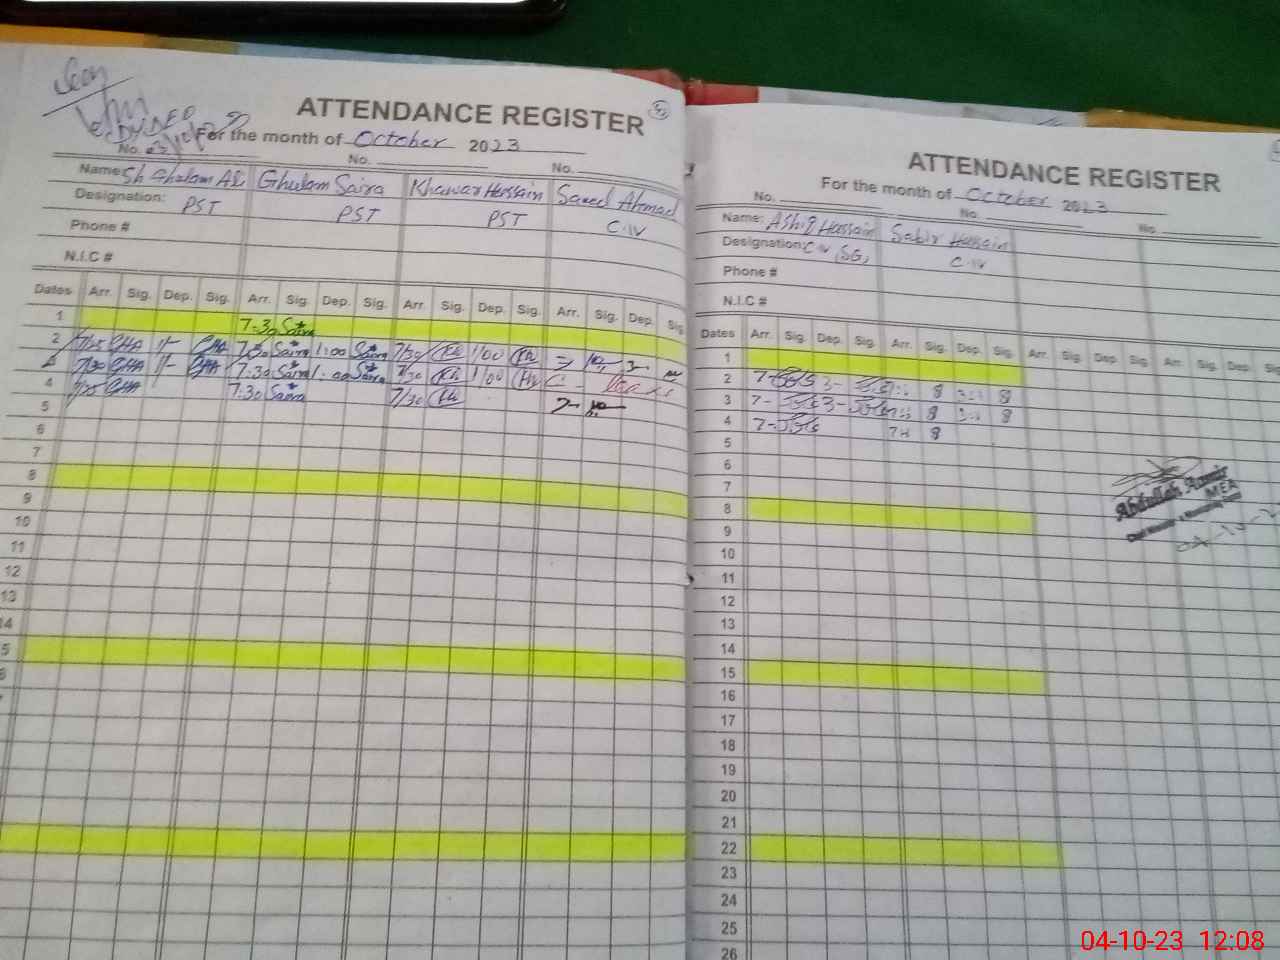 Seen
ATTENDANCE REGISTER
For the month of October 2023
No. No. No.
Name: Sh Ghulam Ali Ghulam Saira Khawar Hussain Saeed Ahmad
Designation: PST PST PST C-IV
Phone #
N.I.C #
Dates Arr. Sig. Dep. Sig. Arr. Sig. Dep. Sig. Arr. Sig. Dep. Sig. Arr. Sig. Dep. Sig.
1 7:30 Saira
2 7/25 GHA 1/- GHA 7:30 Saira 1:00 Saira 7/30 Kh 1/00 Kh
3 7/30 GHA 1/- GHA 7:30 Saira 1:00 Saira 7/30 Kh 1/00 Kh C- Leave
4 7/25 GHA 7:30 Saira 7/30 Kh 7-
5
6
7
8
9
10
11
12
13
14
15
ATTENDANCE REGISTER
For the month of October 2023
No. No. No.
Name: Ashiq Hussain Sabir Hussain
Designation: C-IV (SG) C-IV
Phone #
N.I.C #
Dates Arr. Sig. Dep. Sig. Arr. Sig. Dep. Sig. Arr. Sig. Dep. Sig. Arr. Sig. Dep. Sig.
1
2 7- 3-
3 7- 3-
4 7-
5
6
7
8
9
10
11
12
13
14
15
16
17
18
19
20
21
22
23
24
25
26
Abdullah Aamir
MEA
04-10-23 12:08